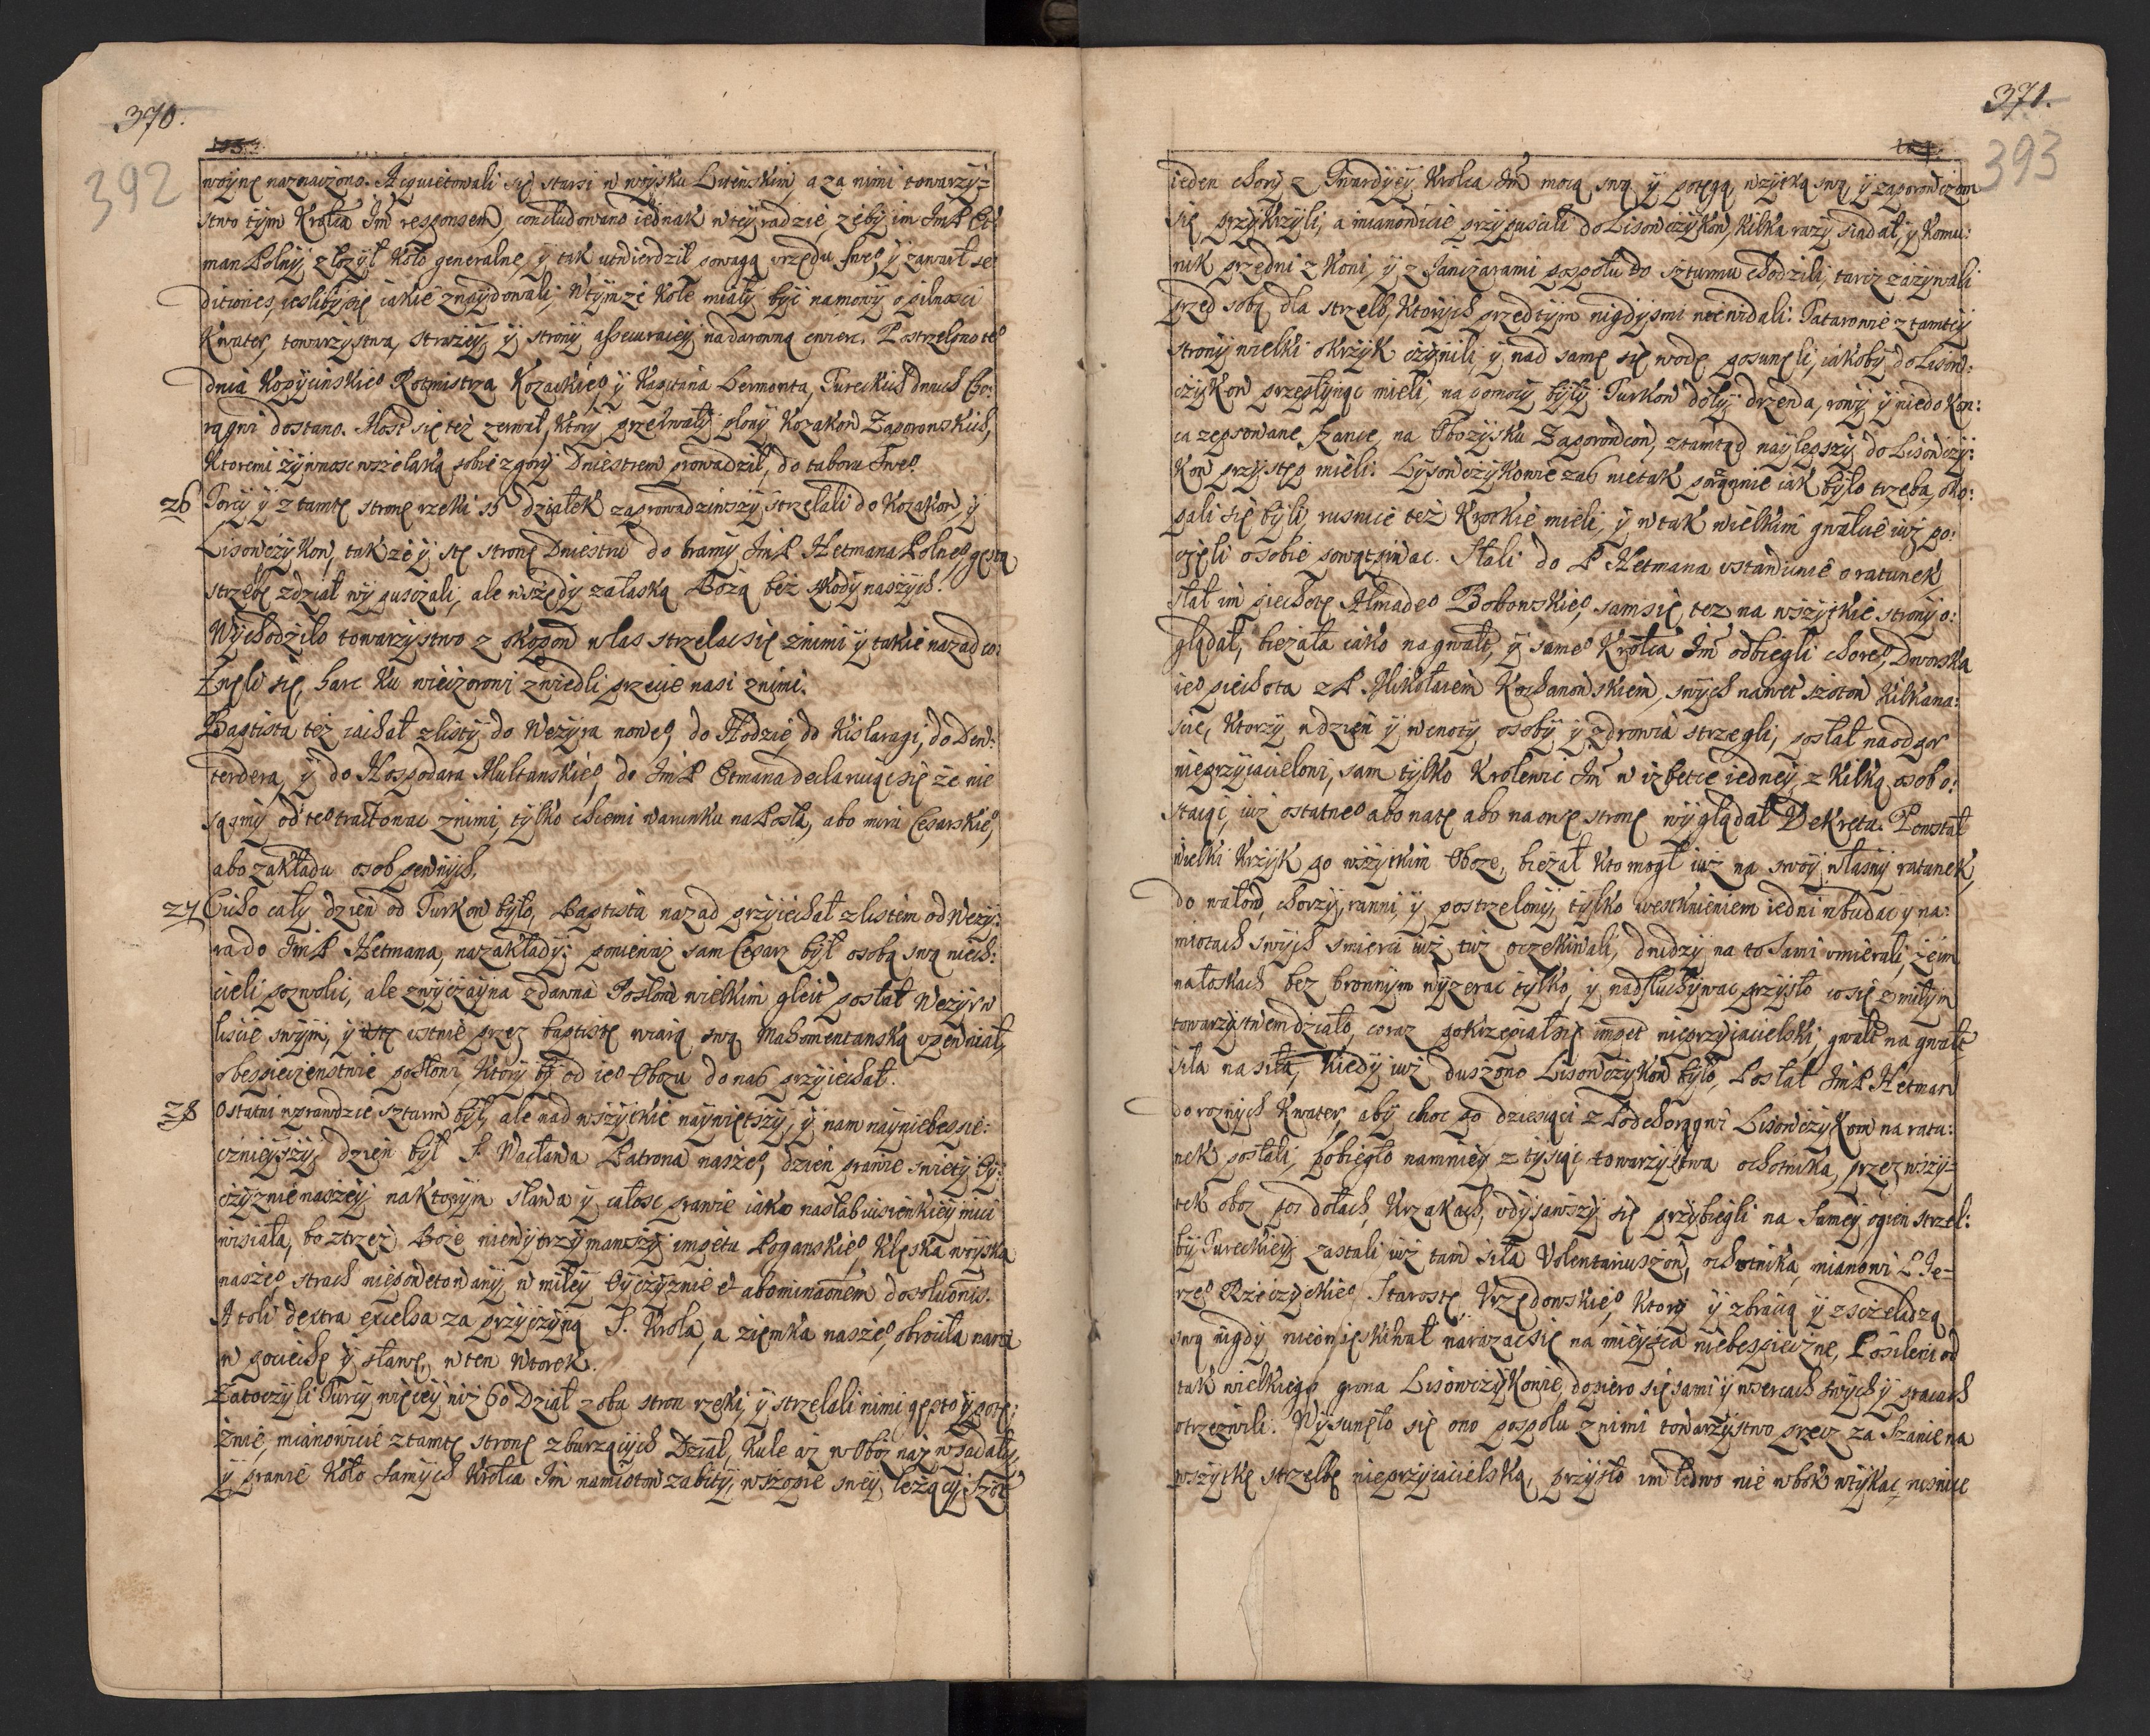 370.
392
woynę naznaczono. Acquietowali się starsi w woysku Litewskim, a za nimi towarzy=
stwo tym Krolca Jm̃ responsem, concludowano iednak w tey radzie, żeby im JmP Et=
man Polny złożył Koło generalne, y tak utwierdził powagą vrzędu sweº y zawarł se=
ditiones, iesliby się iakie znaydowali, W tymże Kole miały być namowy o pilnosci
Kwater, towarzystwa, straży, y strony assecuraciey na darowną cwierc. Postrzelono teº
dnia Kopycinskieº Rotmistrza Kozackieº, y Kapitana Lermonta, Tureckich dwuch Cho=
rągwi dostano. Most się też zerwał, ktory przerwały plony Kozakow Zaporowskich,
Ktoremi żywnosc wszelaką sobie z gory Dniestrem prowadził, do taboru Sweº.
26 Turcy y z tamtę stronę rzeki 15 działek zaprowadziwszy strzelali do Kozakow, y
Lisowczykow, także y z tę stronę Dniestru do bramy JmP Hetmana Polneº gęstą
strzelbę z dział wypuszczali, ale wszędy za łaską Bożą bez szkody naszych.
Wychodziło towarzystwo z okopow w las strzelac się z nimi y takie nazad co=
fnęli się, harc Ku wieczorowi zwiedli przecie nasi z nimi.
Baptista też iachał z listy do Wezyra noweº, do Hodzie, do Kislaragi, do Dew=
terdera, y do Hospodara Multanskieº, do JmP Etmana declaruiąc się że nie
sąsmy od teº tractowac z nimi, tylko chcemi warunku na Posła, abo miru Cesarskieº,
abo zakładu osob pewnych.
27 Cicho cały dzień od Turkow było, Baptista nazad przyiechał z listem od Wezy=
ra do JmP Hetmana, na zakłady: ponieważ sam Cesarz był osobą swą niech=
cieli pozwolic, ale zwyczayna zdawna Posłow wielkim gleit posłał Wezyr w
liscie swym, y ustnie przez baptistę wiarą swą Mahometanską vpewniał,
o bespieczenstwie posłowi, ktory by od ieº Obozu do nas przyiechał.
28 Ostatni wprawdzie szturm był, ale nad wszytkie naywiętszy, y nam nayniebespie=
cznieyszy, dzień był S. Wacława Patrona naszeº, dzień prawie swięty Oy=
czyznie naszey, na ktorym sława y całosc prawie iako na słabiusienkiey nici
wisiała, bo strzeż Boże niewytrzymawszy impetu Poganskieº, Klęska woyska
naszeº, strach niepowetowany, w miłey Oyczyznie et abominaõnem dosoluõnis.
Atoli dextra excelsa za przyczyną S. Krola, a ziemka naszeº, obrociła nam
w pociechę y sławę, w ten Wtorek.
Zatoczyli Turcy więcey niż 60 Dział z obu stron rzeki, y strzelali nimi gęsto y potę=
żnie, mianowicie z tamtę stronę z burzących Dział, Kule aż w Oboz nasz wpadały,
y prawie Koło samych Krolca Jm namiotow zabity, w szopie swey leżący,
371.
393
ieden chory z Gwardyey Krolca Jm̃ mocą swą y potęgą wszytką swą, y zaporowczom
się przykrzyli, a mianowicie przypuscili do Lisowczykow, Kilka razy siadał, y Komu=
nik przedni z Koni, y z Janczarami pospołu do szturmu chodzili, tarcz zażywali
przed sobą dla strzelb, ktorych przedtym nigdysmi nie widali: Tatarowie z tamtey
strony wielki okrzyk czynili, y nad samę się wodę posunęli, iakoby do Lisow=
czykow przepłynąc mieli, na pomocy były Turkow doły, drzewa, rowy y niedokon=
ca zepsowane szance, na Obozysku Zaporowcow, ztamtąd naylepszy do Lisowczy=
kow przystęp mieli: Lysowczykowie zas nietak porządnie iak było trzeba, oko=
pali się byli, rusnice też Krotkie mieli, y w tak wielkim gwałcie iuż po=
częli o sobie powątpiwac. Słali do P Hetmana vstawicznie o ratunek,
słał im piechotę Almadeº Bobowskieº, sam się tez na wszytkie strony o=
glądał, bieżała iako na gwałt, y sameº Krolca Jm̃ odbiegli choreº, Dworska
ieº piechota z P. Mikołaiem Kochanowskiem, swych nawet szotow Kilkana=
scie, Ktorzy w dzień y w nocy osoby y zdrowia strzegli, posłał na odpor
nieprzyiacielowi, sam tylko Krolewic Jm̃ w izbetce iedney, z Kilką osob o=
staiąc, iuż ostatneº abo na tę abo na onę stronę wyglądał Dekretu. Powstał
wielki Krzyk po wszytkim Obozie, bieżał kto mogł iuż na swoy własny ratunek,
do wałow, chorzy, ranni y postrzelony, tylko westchnieniem iedni w budac y na=
miotach swych smierci iuż tuż oczekiwali, drudzy na to sami vmierali, że im
na łoskach bez bronnym wyzerac tylko, y nadsłuchywac przyszło co się z miłym
towarzystwem działo, coraz pokrzepiał się impet nieprzyiacielski, gwałt na gwałt
siła na siłę, Kiedy iuż duszono Lisowczykow było, Posłał JmP Hetman
do roznych Kwater, aby choc po dziesiąci z Podchorągwi Lisowczykom na ratu=
nek posłali, pobiegło namniey z tysiąc towarzystwa ochotnika, przez wszy=
tek oboz po dołach, Krzakach, vdysawszy się przybiegli na samey ogien strzel=
by Tureckiey, zastali iuż tam siła Volentariuszow, ochotnika, mianowi P Je=
rzeº Rzeczyckieº Starostę Vrzędowskieº, Ktory y z bracią y z czeladzą
swą nigdy nieomieskiwał narażac się na mieysca niebespieczne, Posileni od
tak wielkiego grona Lisowczykowie, dopiero się sami y w sercach swych y pracach
otrzezwili: Wysunęło się ono pospołu z nimi towarzystwo precz za szance na
wszytkę strzelbę nieprzyiacielską, przyszło im ledwo nie w bok wtykac rusnice